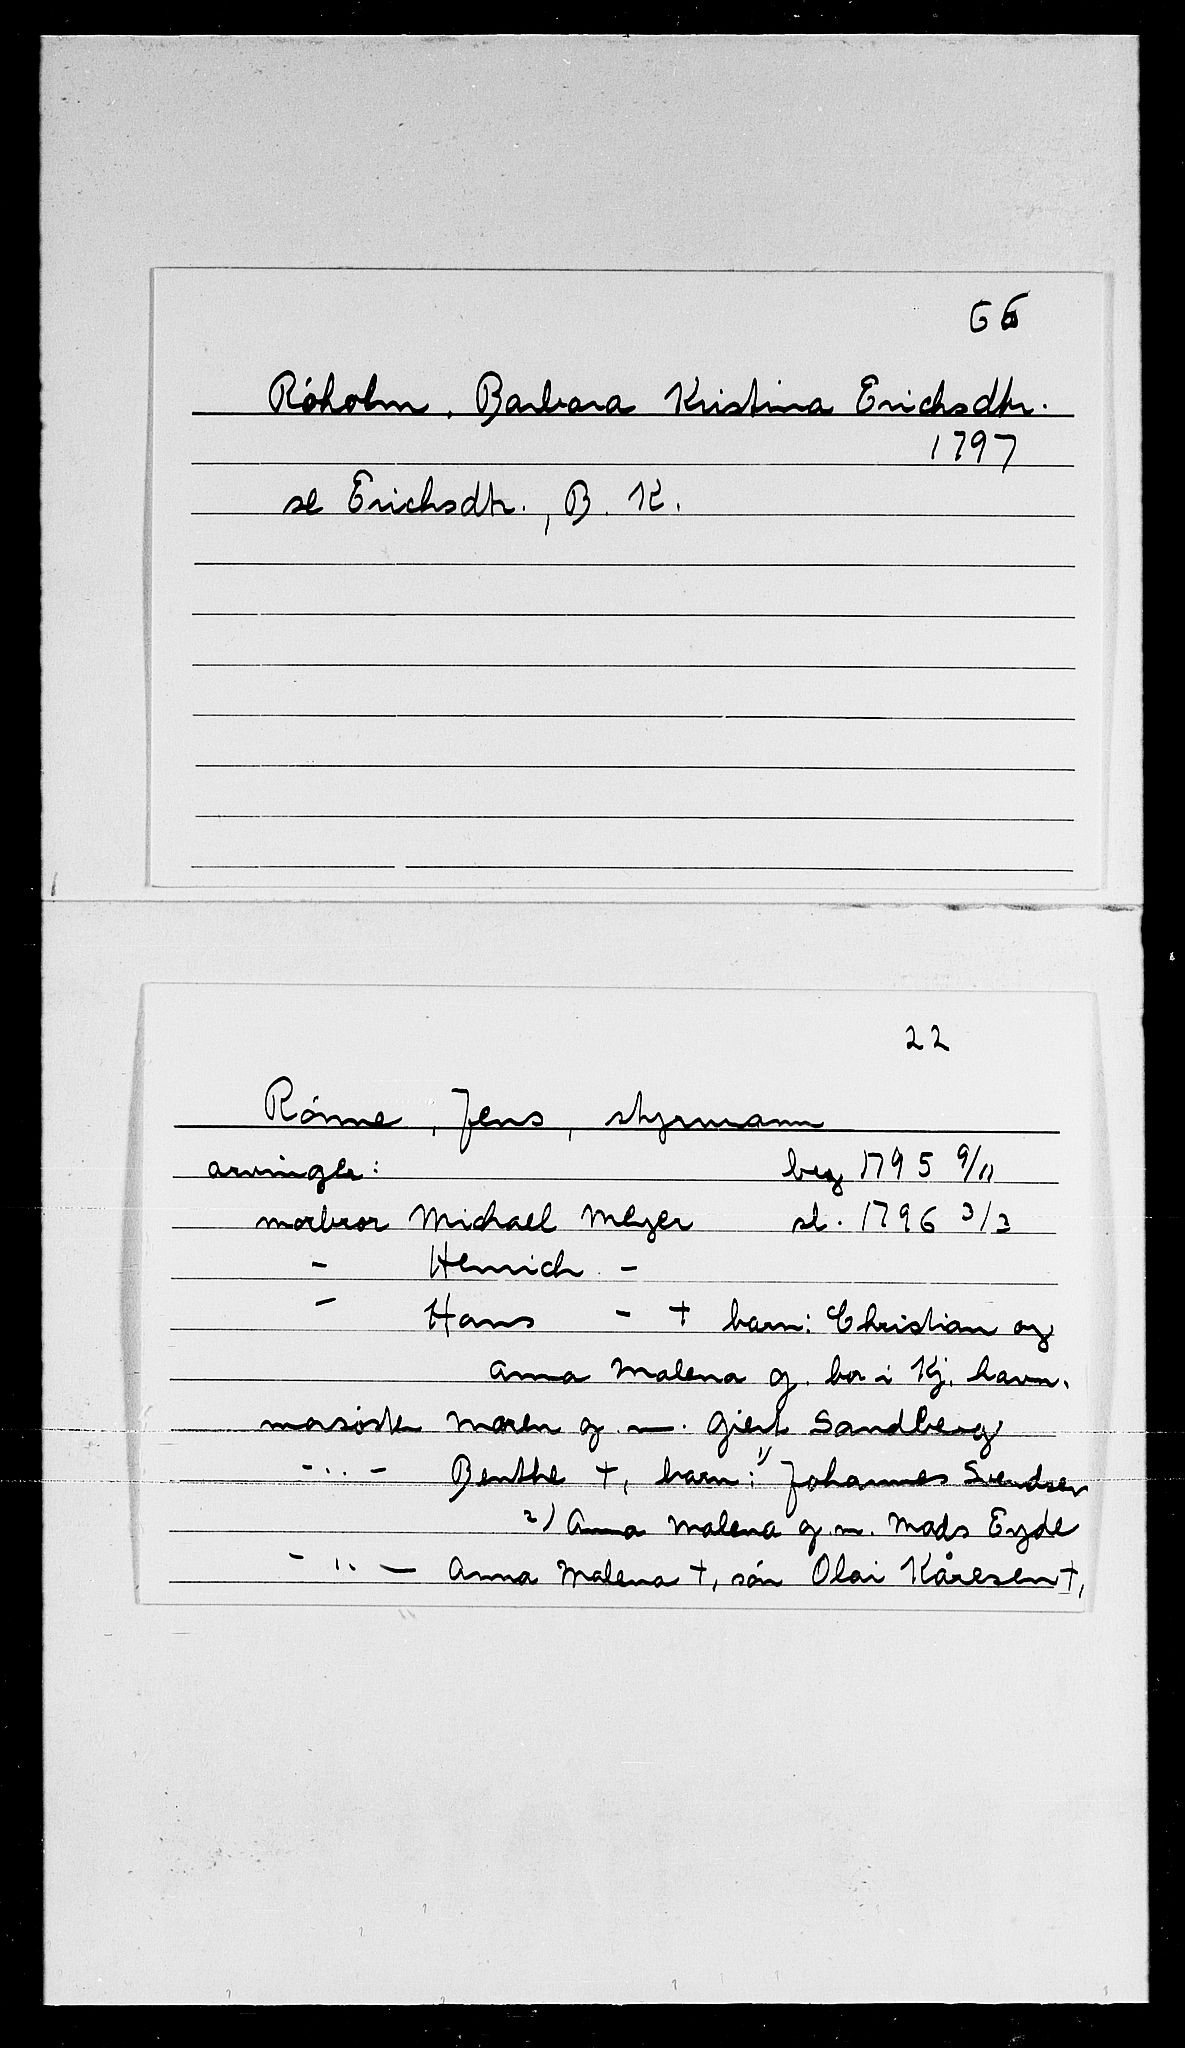 66
Róholm, Barbara Kristina Erichsdtr.
1797
se Erichsdtr., B. K.
22
Rónne, Jens, styrmann
arvinger: beg 1795 9/11
morbror Michael Meyer sl. 1796 3/3
- Henrich -
- Hans - + barn: Christian og
Anna Malena g. bor i Kj. havn.
morsóster Maren g. m. Giert Sandberg
-..- Benthe +, barn: 1) Johannes Svendsen
2) Anna Malena g. m. Mads Eyde
-..- Anna Malena +, són Olai Kåresen +,